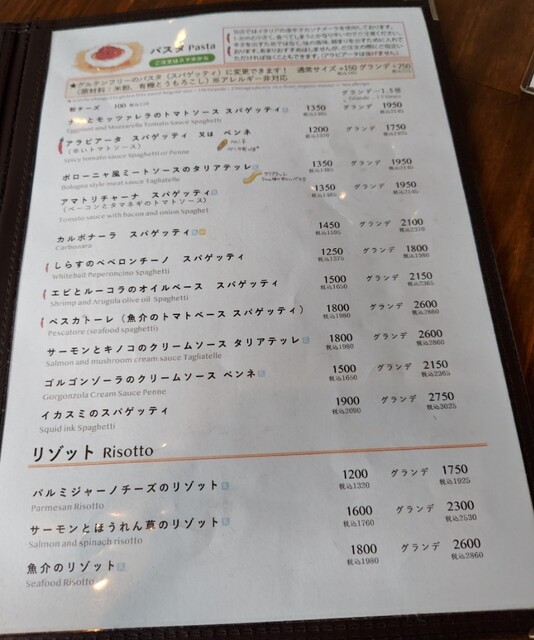 パスタ Pasta
★グルテンフリーのパスタ（スパゲッティ）に変更できます！ 通常サイズ+150 グランデ+250
（原材料：米粉、有機とうもろこし）※アレルギー非対応
粉チーズ 100
グランデ…1.5倍
とモッツァレラのトマトソース スパゲッティ 1350 1950
Eggplant and Mozzarella Tomato Sauce Spaghetti
アラビアータ スパゲッティ 又は ペンネ 1200 グランデ 1750
（辛いトマトソース）
Spicy tomato sauce Spaghetti or Penne
ボローニャ風ミートソースのタリアテッレ 1350 グランデ 1950
Bologna style meat sauce Tagliatelle
アマトリチャーナ スパゲッティ 1350 グランデ 1950
（ベーコンとタマネギのトマトソース）
Tomato sauce with bacon and onion Spaghet
カルボナーラ スパゲッティ 1450 グランデ 2100
Carbonara 税込1595 税込2310
しらすのペペロンチーノ スパゲッティ 1250 グランデ 1800
Whitebait Peperoncino Spaghetti 税込1375 税込1980
エビとルーコラのオイルベース スパゲッティ 1500 グランデ 2150
Shrimp and Arugula olive oil Spaghetti 税込1650 税込2365
ペスカトーレ（魚介のトマトベース スパゲッティ） 1800 グランデ 2600
Pescatore (seafood spaghetti) 税込1980 税込2860
サーモンとキノコのクリームソース タリアテッレ 1800 グランデ 2600
Salmon and mushroom cream sauce Tagliatelle 税込1980 税込2860
ゴルゴンゾーラのクリームソース ペンネ 1500 グランデ 2150
Gorgonzola Cream Sauce Penne 税込1650 税込2365
イカスミのスパゲッティ 1900 グランデ 2750
Squid ink Spaghetti 税込2090 税込3025
リゾット Risotto
パルミジャーノチーズのリゾット 1200 グランデ 1750
Parmesan Risotto 税込1320 税込1925
サーモンとほうれん草のリゾット 1600 グランデ 2300
Salmon and spinach risotto 税込1760 税込2530
魚介のリゾット 1800 グランデ 2600
Seafood Risotto 税込1980 税込2860